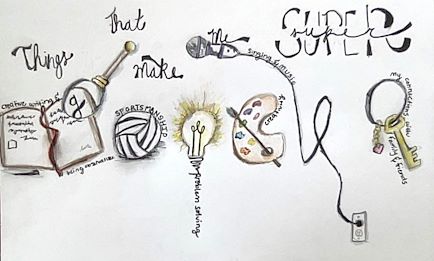 Things
That
Make
Me
SUPER
super
singing & music
creative writing &
being observant
SPORTSMANSHIP
problem solving
creativity
my connections with
family & friends